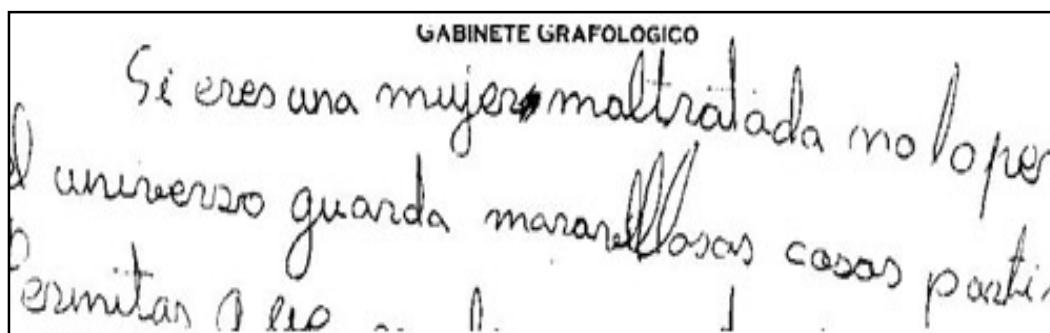 GABINETE GRAFOLOGICO
Si eres una mujer maltratada no lo per
el universo guarda maravillosas cosas parti
Permitas que